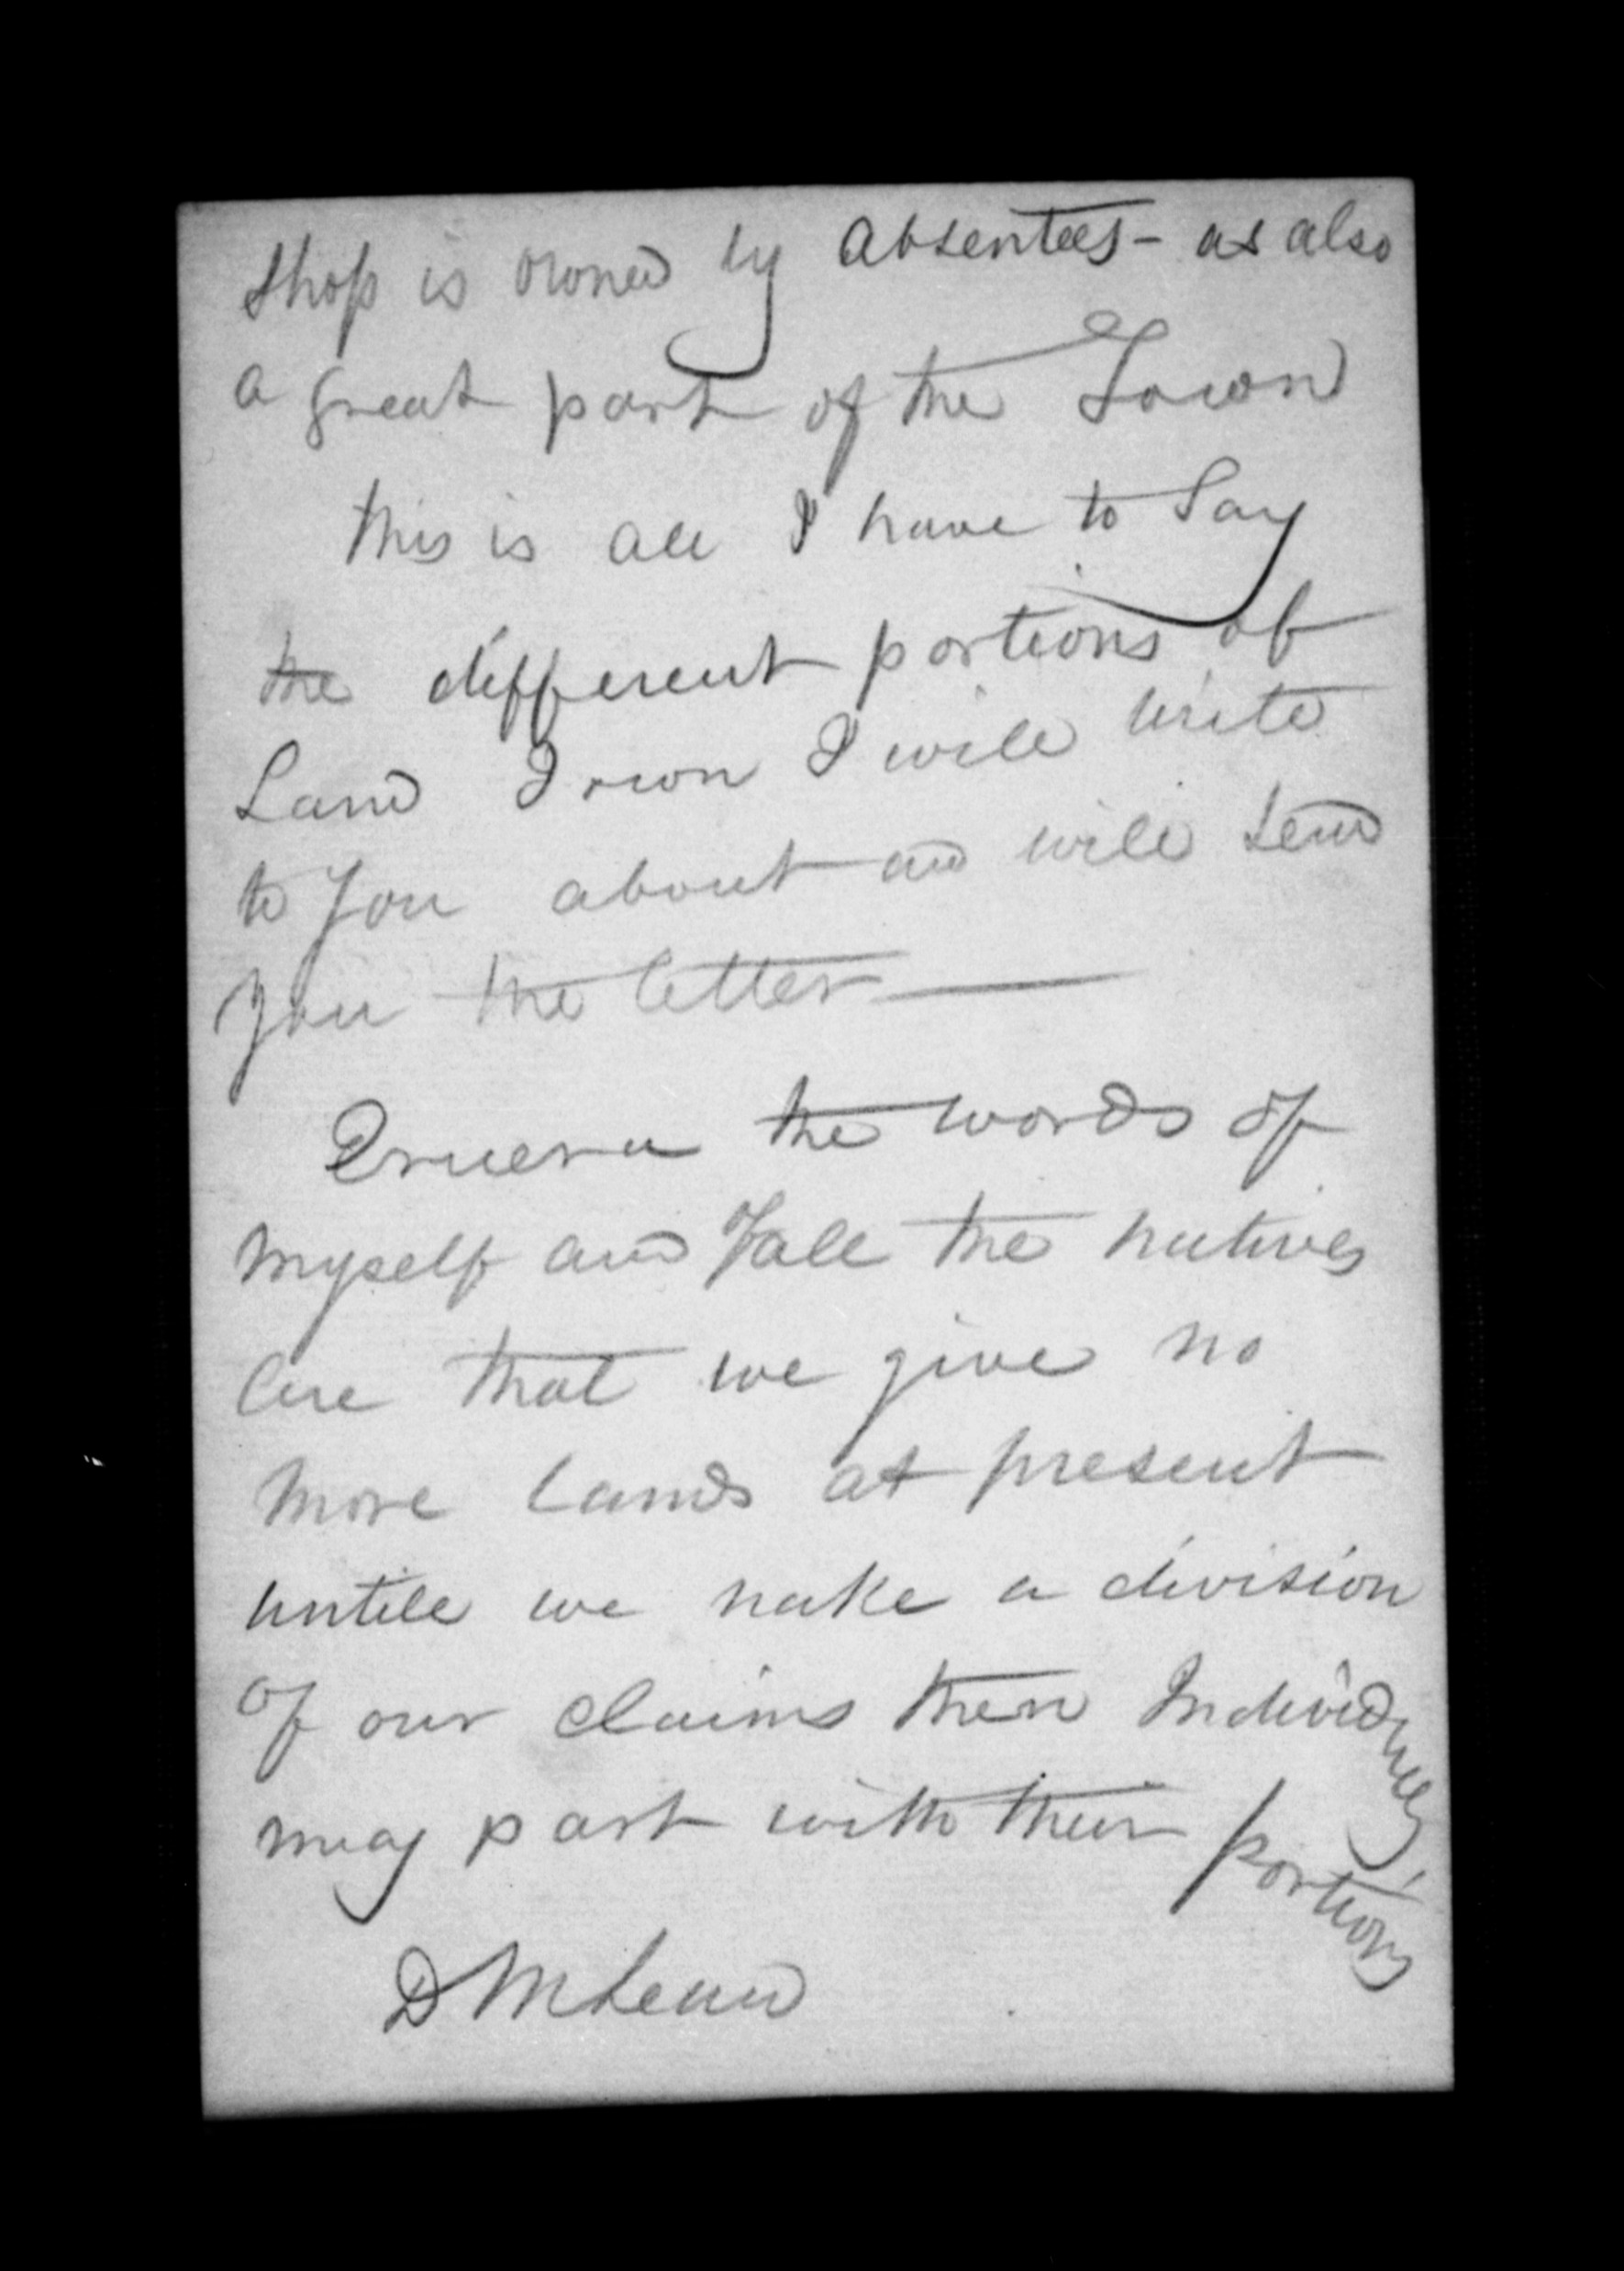 shop is owned by absentees - as also
a great part of the Town
this is all I have to say
the different portions of
Land I own I will write
to you about and will send
you the letter —
Eruera the words of
myself and of all the natives
are that we give no
more lands at present
untill we make a division
of our claims then Individuals
may part with their portions
D McLean